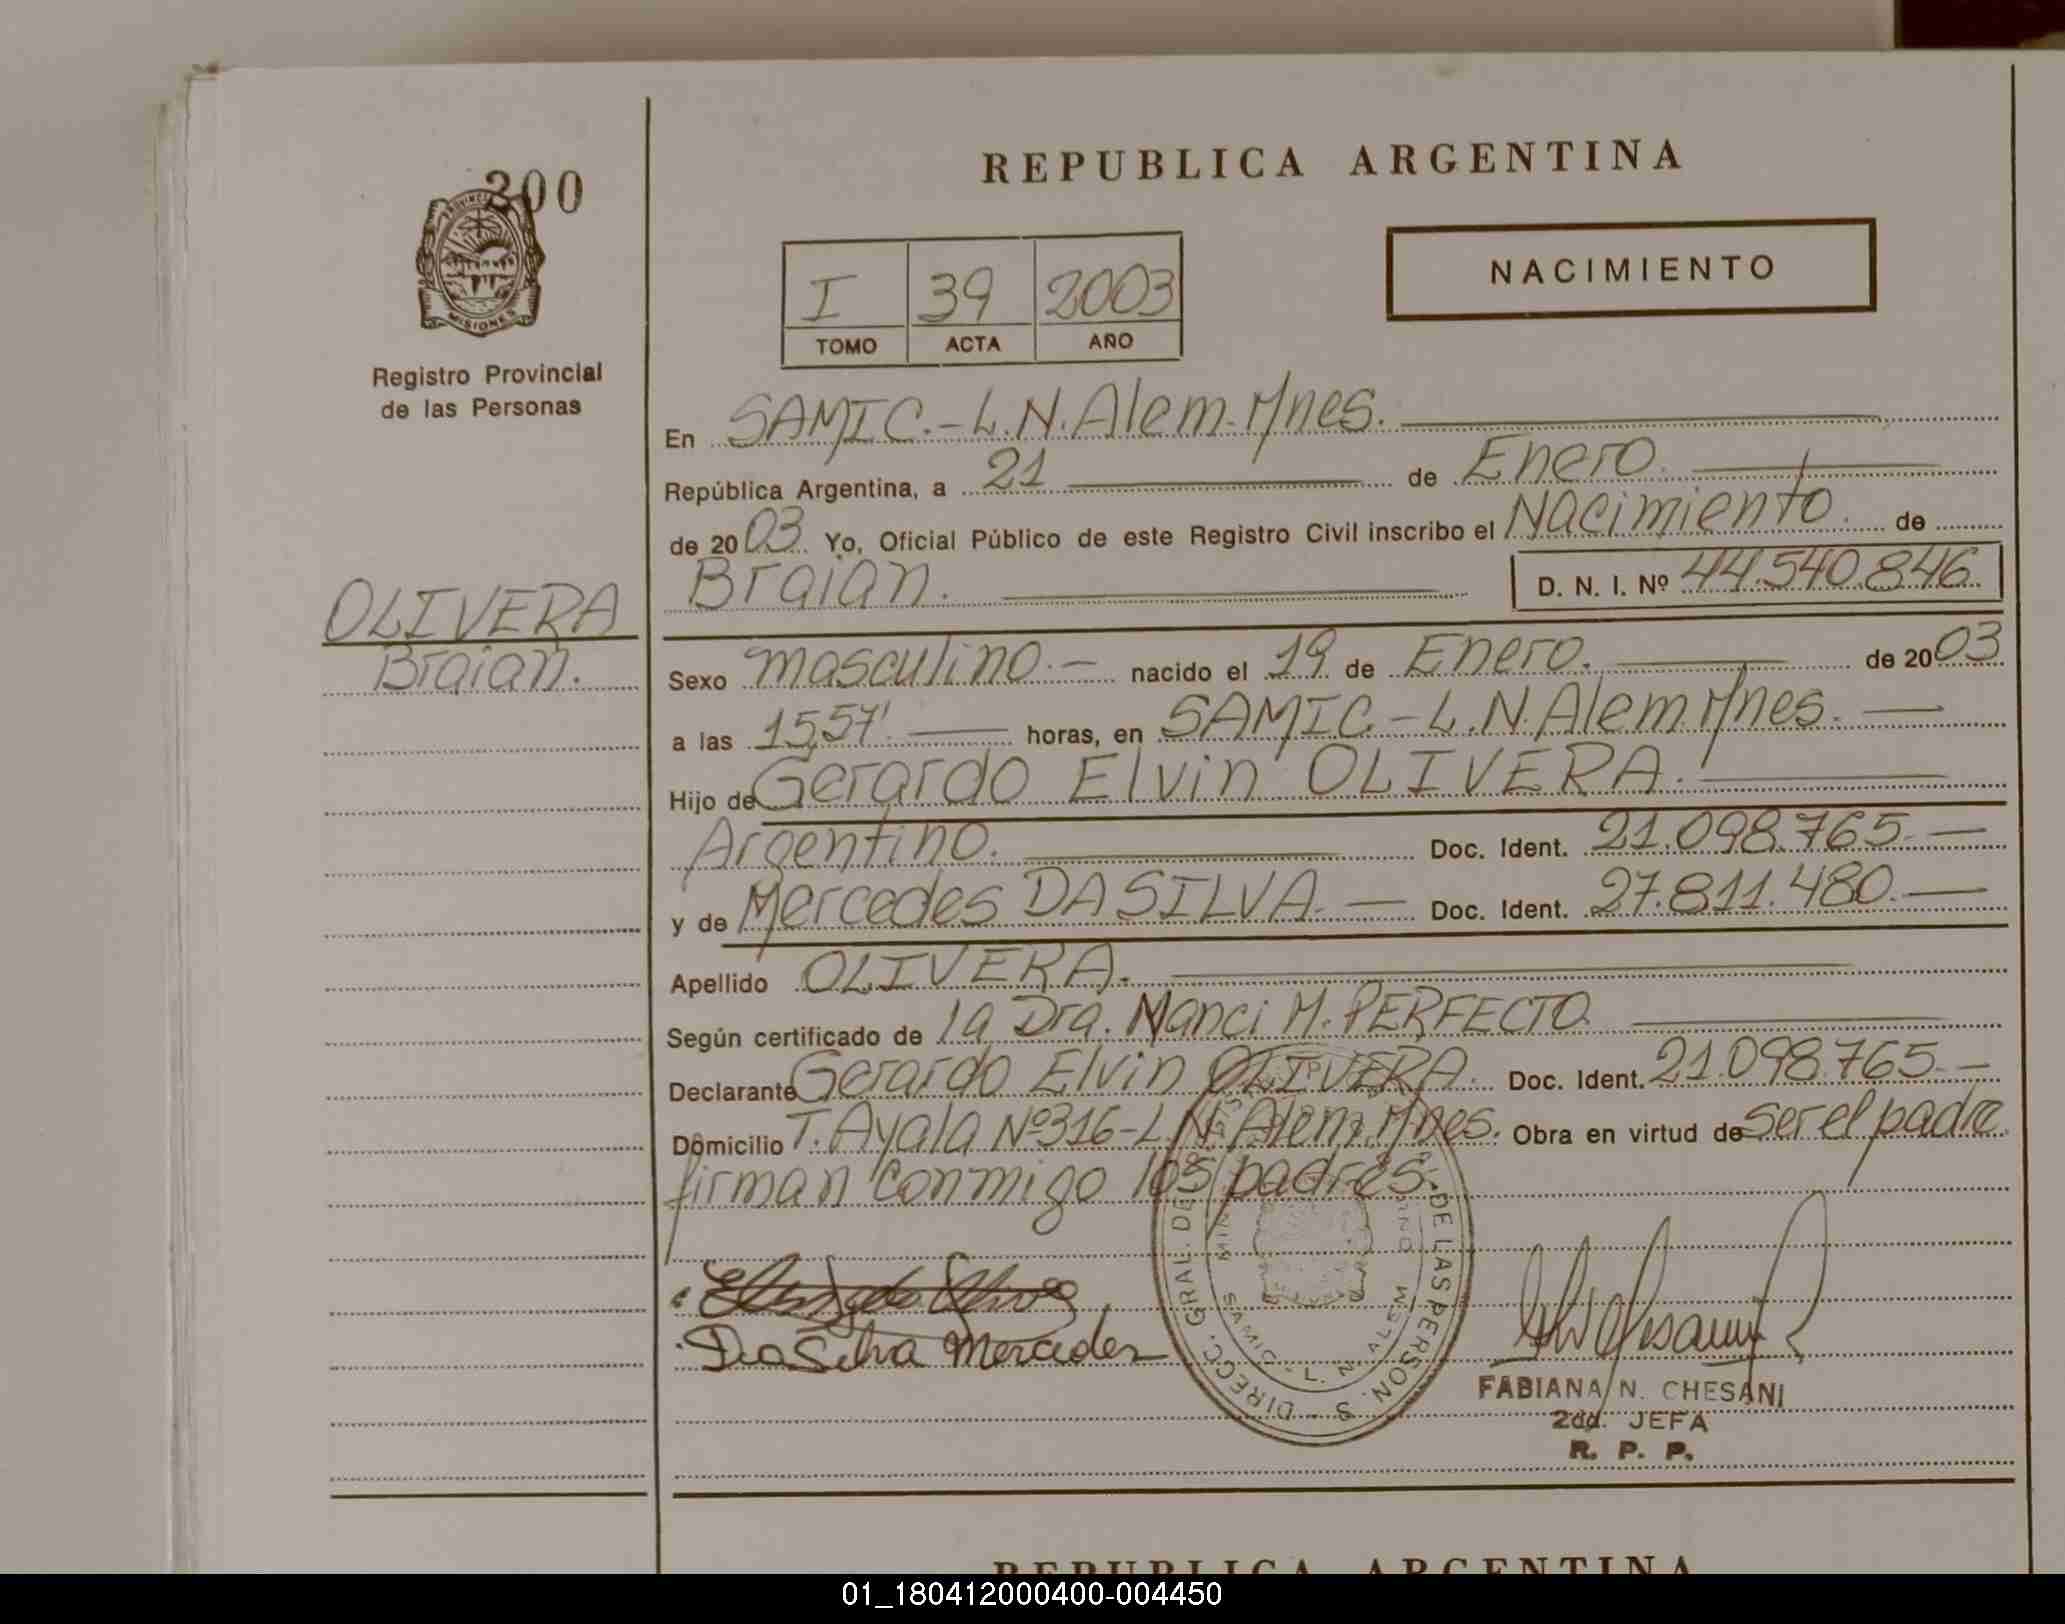 300
PROVINCIA
MISIONES
Registro Provincial
de las Personas
OLIVERA
Braian.
REPUBLICA ARGENTINA
I 39 2003
TOMO ACTA AÑO
NACIMIENTO
En SAMIC.-L.N.Alem-Mnes.
República Argentina, a 21 de Enero.
de 2003. Yo, Oficial Público de este Registro Civil inscribo el Nacimiento. de
Braian. D. N. I. Nº 44.540.846
Sexo masculino.- nacido el 19 de Enero. de 2003
a las 15,57' horas, en SAMIC.-L.N.Alem.Mnes.
Hijo de Gerardo Elvin OLIVERA.
Argentino. Doc. Ident. 21.098.765.-
y de Mercedes DA SILVA.- Doc. Ident. 27.811.480.-
Apellido OLIVERA.
Según certificado de la Dra. Nanci M. PERFECTO
Declarante Gerardo Elvin OLIVERA. Doc. Ident. 21.098.765.-
Domicilio T. Ayala Nº316-L.N.Alem.Mnes. Obra en virtud de ser el padre.
firman conmigo los padres.
Da Silva Mercedes
DIRECC. GRAL. DE DE LAS PERSON. S
SAMIC - L. N. ALEM
FABIANA N. CHESANI
2da. JEFA
R. P. P.
REPUBLICA ARGENTINA
01_180412000400-004450